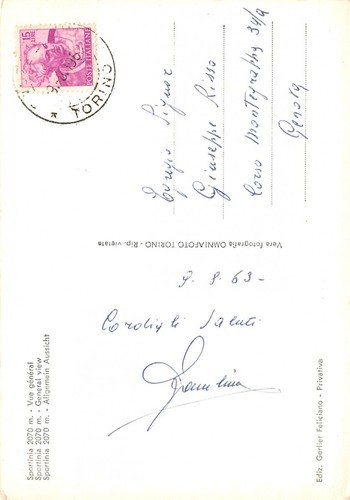 15
LIRE
POSTE ITALIANE
TORINO
Egregio Signor
Giuseppe Risso
Corso Montegrappa
Genova
Vera fotografia OMNIAFOTO TORINO - Rip. vietata
9-8-63-
Cordiali Saluti
Sportinia 2070 m. - Vue général
Sportinia 2070 m. - General view
Sportinia 2070 m. - Allgemein Aussicht
Ediz. Gorlier Feliciano - Privativa